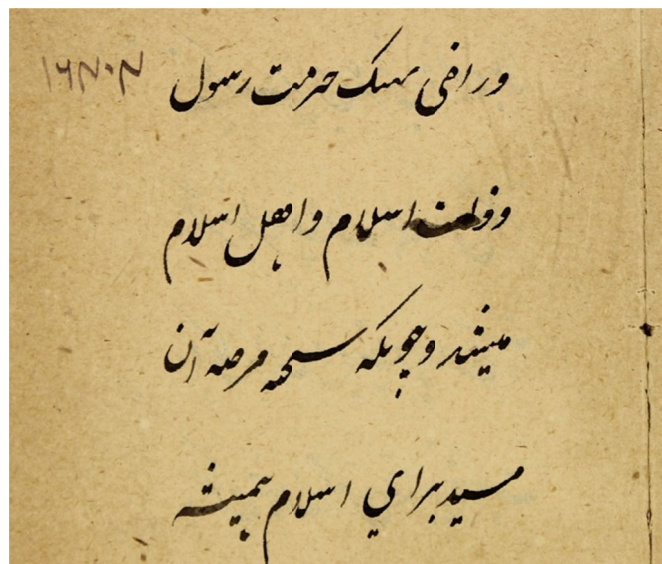 و راضی بهتک حرمت رسول
و ذلت اسلام و اهل اسلام
میشد و چونکه آن
میرسید برای اسلام همیشه